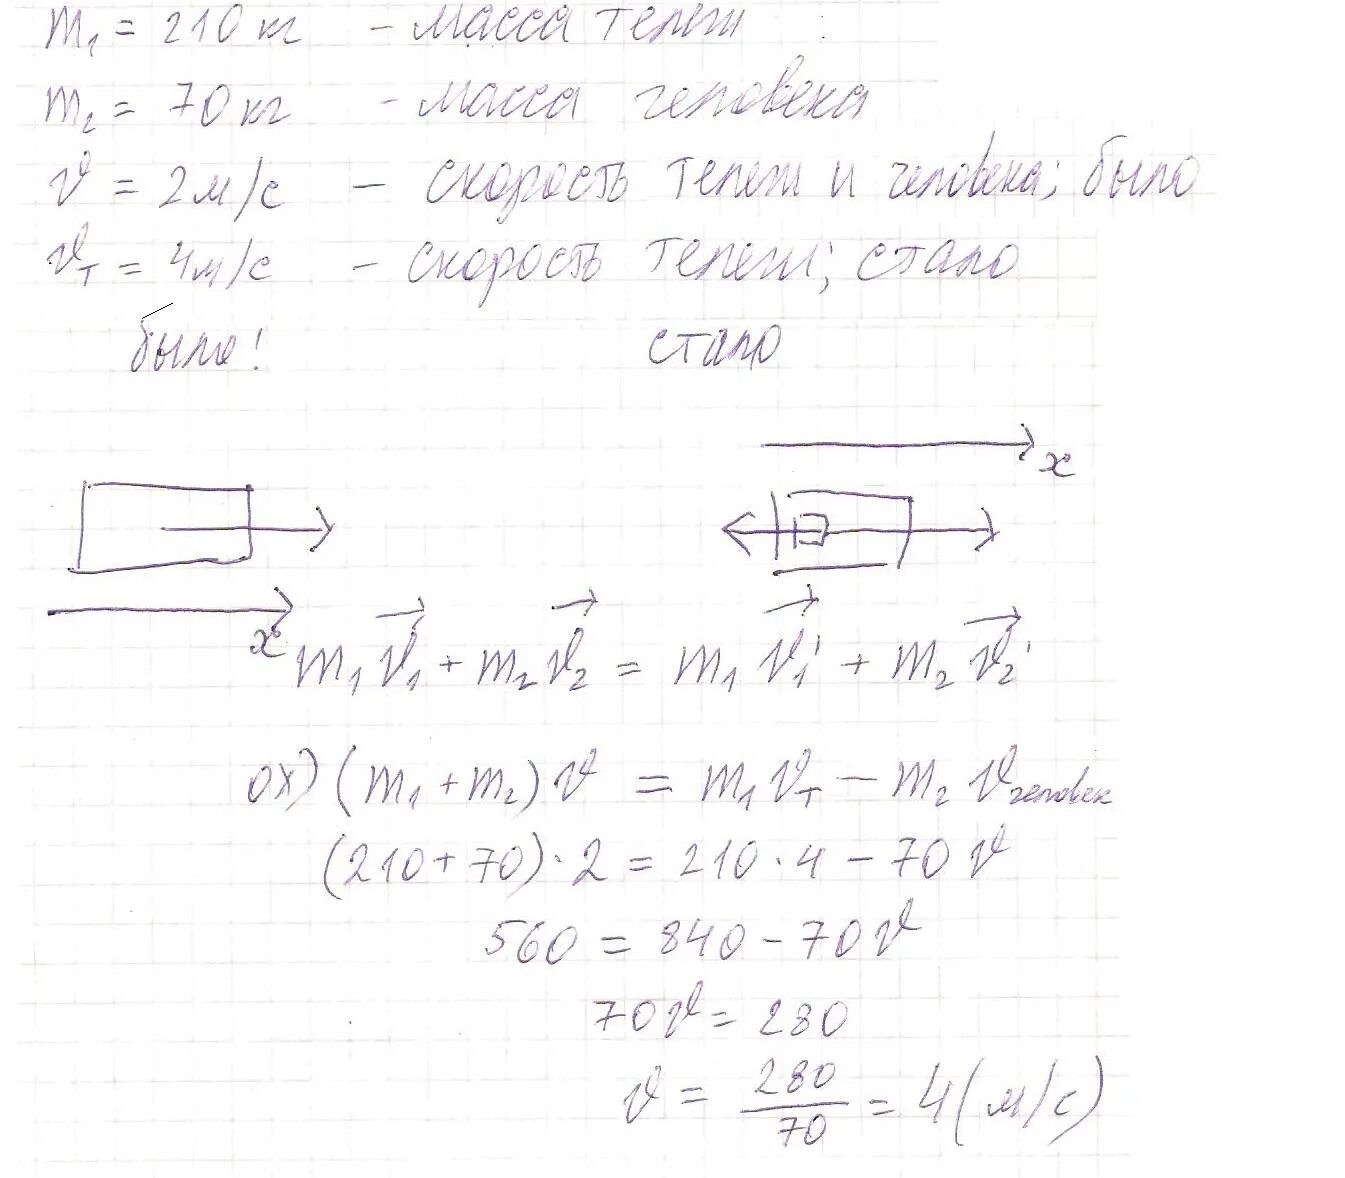 m₁ = 210 кг - масса тележ
m₂ = 70 кг - масса человека
v = 2 м/с - скорость тележ и человека; было
vт = 4 м/с - скорость тележ; стало
было! стало
x
x
m₁v⃗₁ + m₂v⃗₂ = m₁v⃗₁' + m₂v⃗₂'
ox) (m₁ + m₂) v = m₁vт - m₂ v человек
(210 + 70) · 2 = 210 · 4 - 70 v
560 = 840 - 70 v
70 v = 280
v = 280/70 = 4 (м/с)